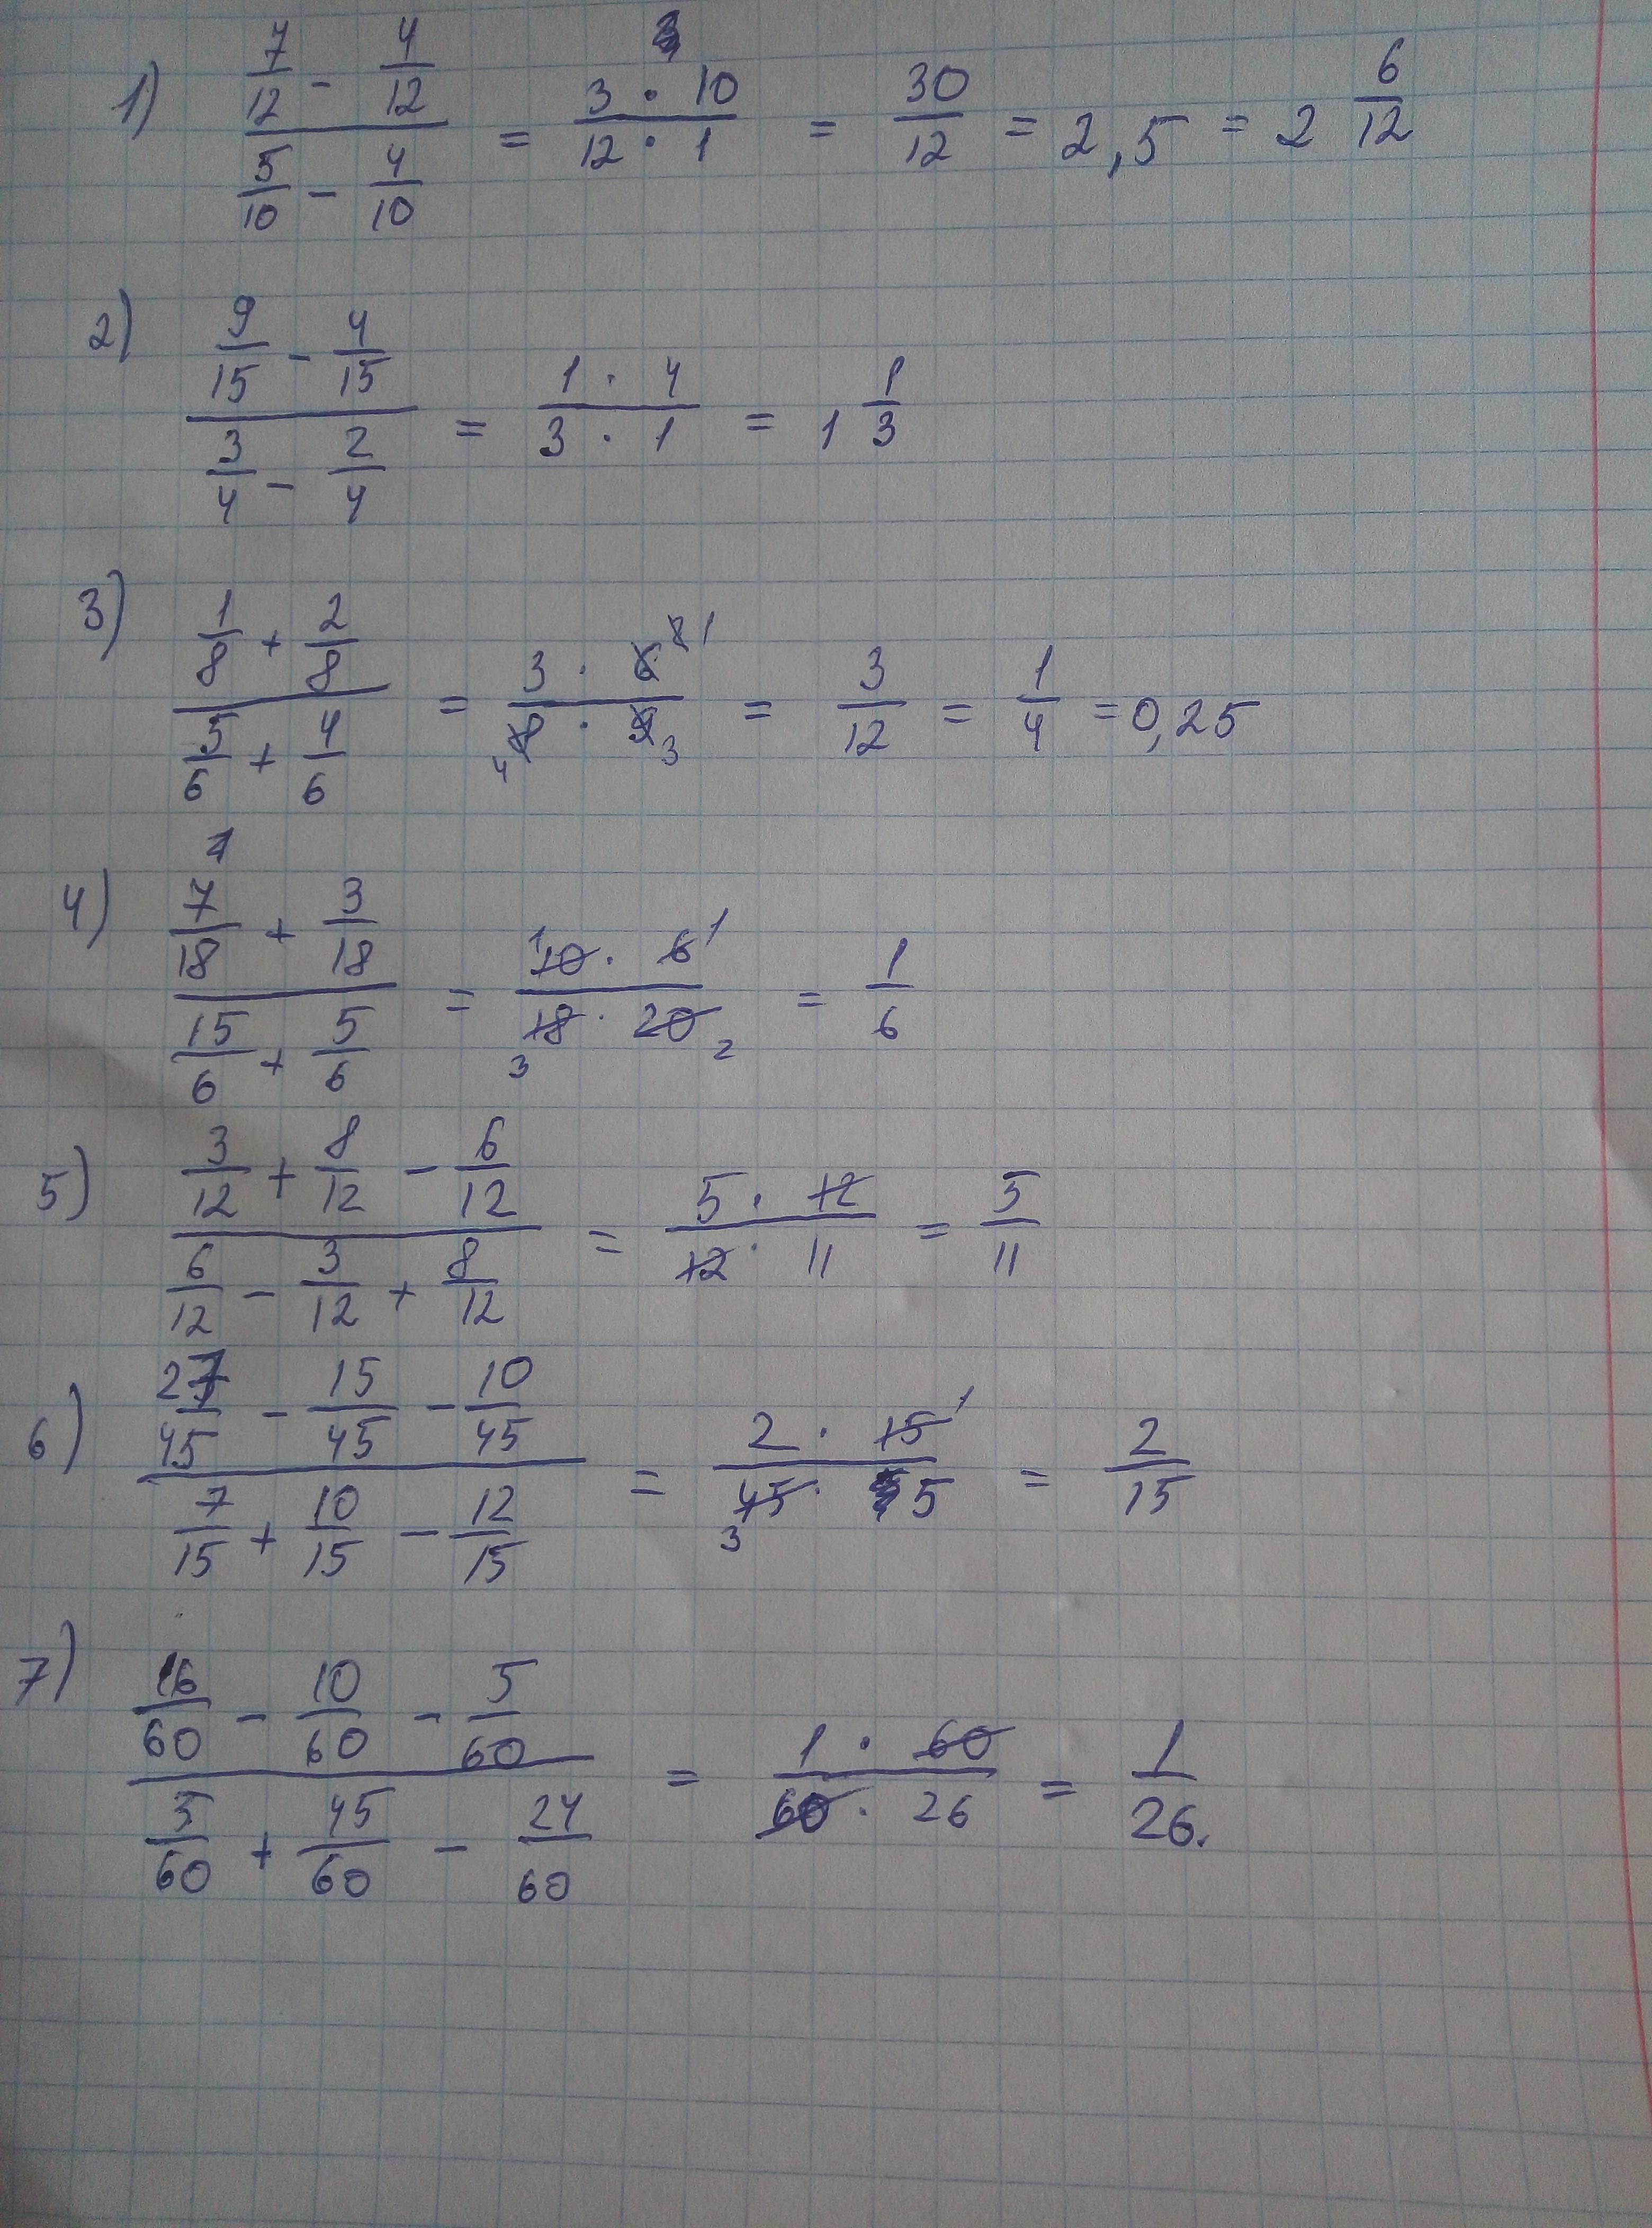 1) (7/12 - 4/12) / (5/10 - 4/10) = (3 · 10) / (12 · 1) = 30/12 = 2,5 = 2 6/12
2) (9/15 - 4/15) / (3/4 - 2/4) = (1 · 4) / (3 · 1) = 1 1/3
3) (1/8 + 2/8) / (5/6 + 4/6) = (3 · 6 1) / (4 8 · 9 3) = 3/12 = 1/4 = 0,25
4) (7/18 + 3/18) / (15/6 + 5/6) = (1 10 · 6 1) / (3 18 · 20 2) = 1/6
5) (3/12 + 8/12 - 6/12) / (6/12 - 3/12 + 8/12) = (5 · 12) / (12 · 11) = 5/11
6) (27/45 - 15/45 - 10/45) / (7/15 + 10/15 - 12/15) = (2 · 15 1) / (3 45 · 5) = 2/15
7) (16/60 - 10/60 - 5/60) / (5/60 + 45/60 - 24/60) = (1 · 60) / (60 · 26) = 1/26.